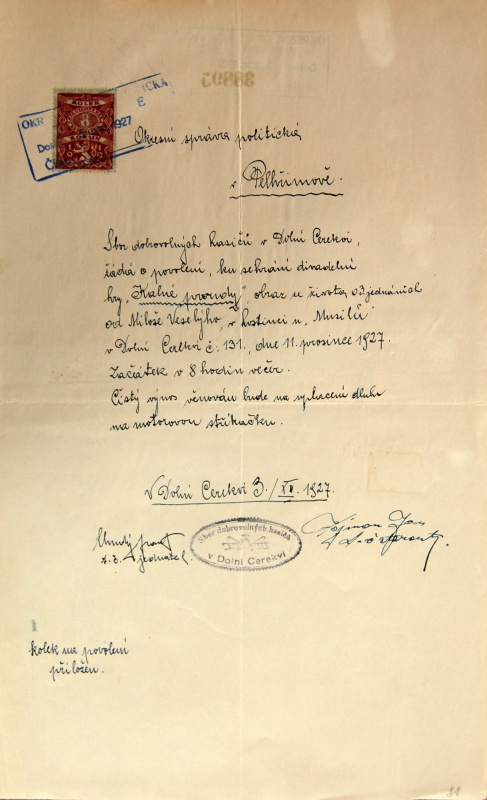 38895
KOLEK
8
1927
Okresní správa politická
v Pelhřimově.
Sbor dobrovolných hasičů v Dolní Cerekvi,
žádá o povolení, ku sehrání divadelní
hry, "Kalné proudy", obraz ze života o 3 jednáních
od Miloše Veselýho, v hostinci u Musilů
v Dolní Cerekvi č. 131., dne 11. prosince 1927.
Začátek v 8 hodin večer.
Čistý výnos věnován bude na splacení dluhu
na motorovou stříkačku.
V Dolní Cerekvi 3./XII. 1927.
Sbor dobrovolných hasičů
v Dolní Cerekvi
jednatel.
Jan
starosta
kolek na povolení
přiložen.
81